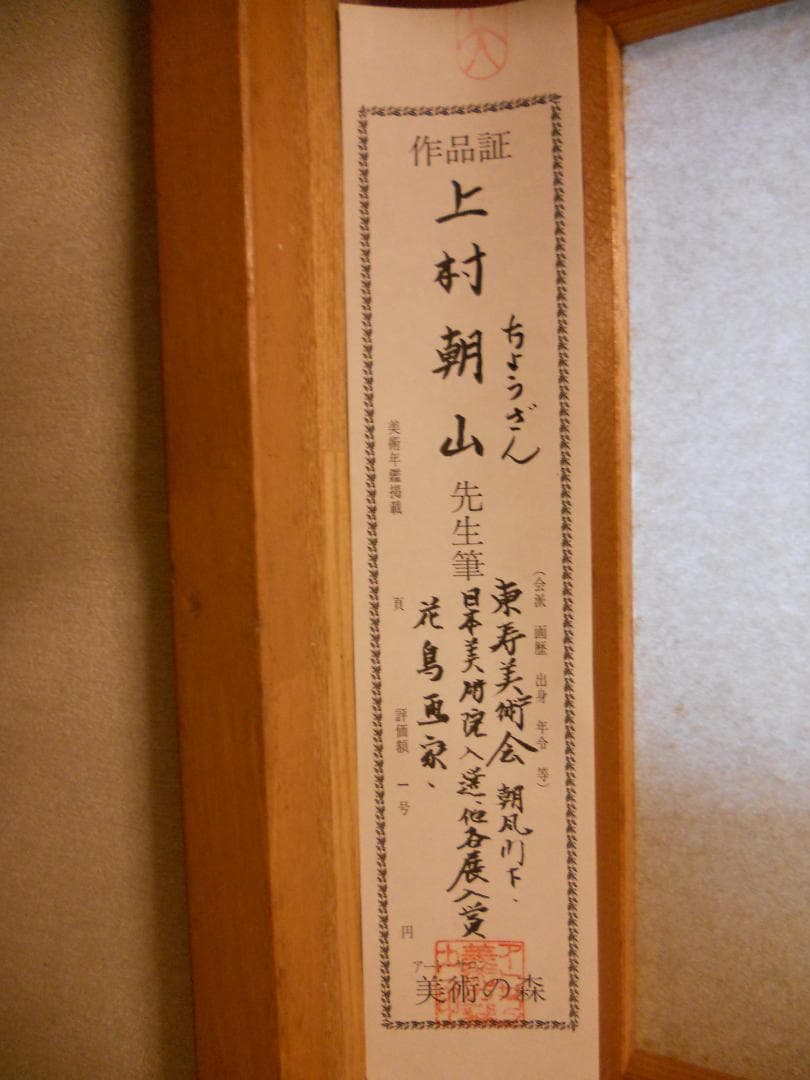 作品証
上村朝山先生筆
ちょうざん
(会派 画歴 出身 年令 等)
東寿美術会 朝風門下、
日本美術院入選、他各展入賞
花鳥画家、
美術年鑑掲載 頁 評価額 一号 円
アートサロン
美術の森